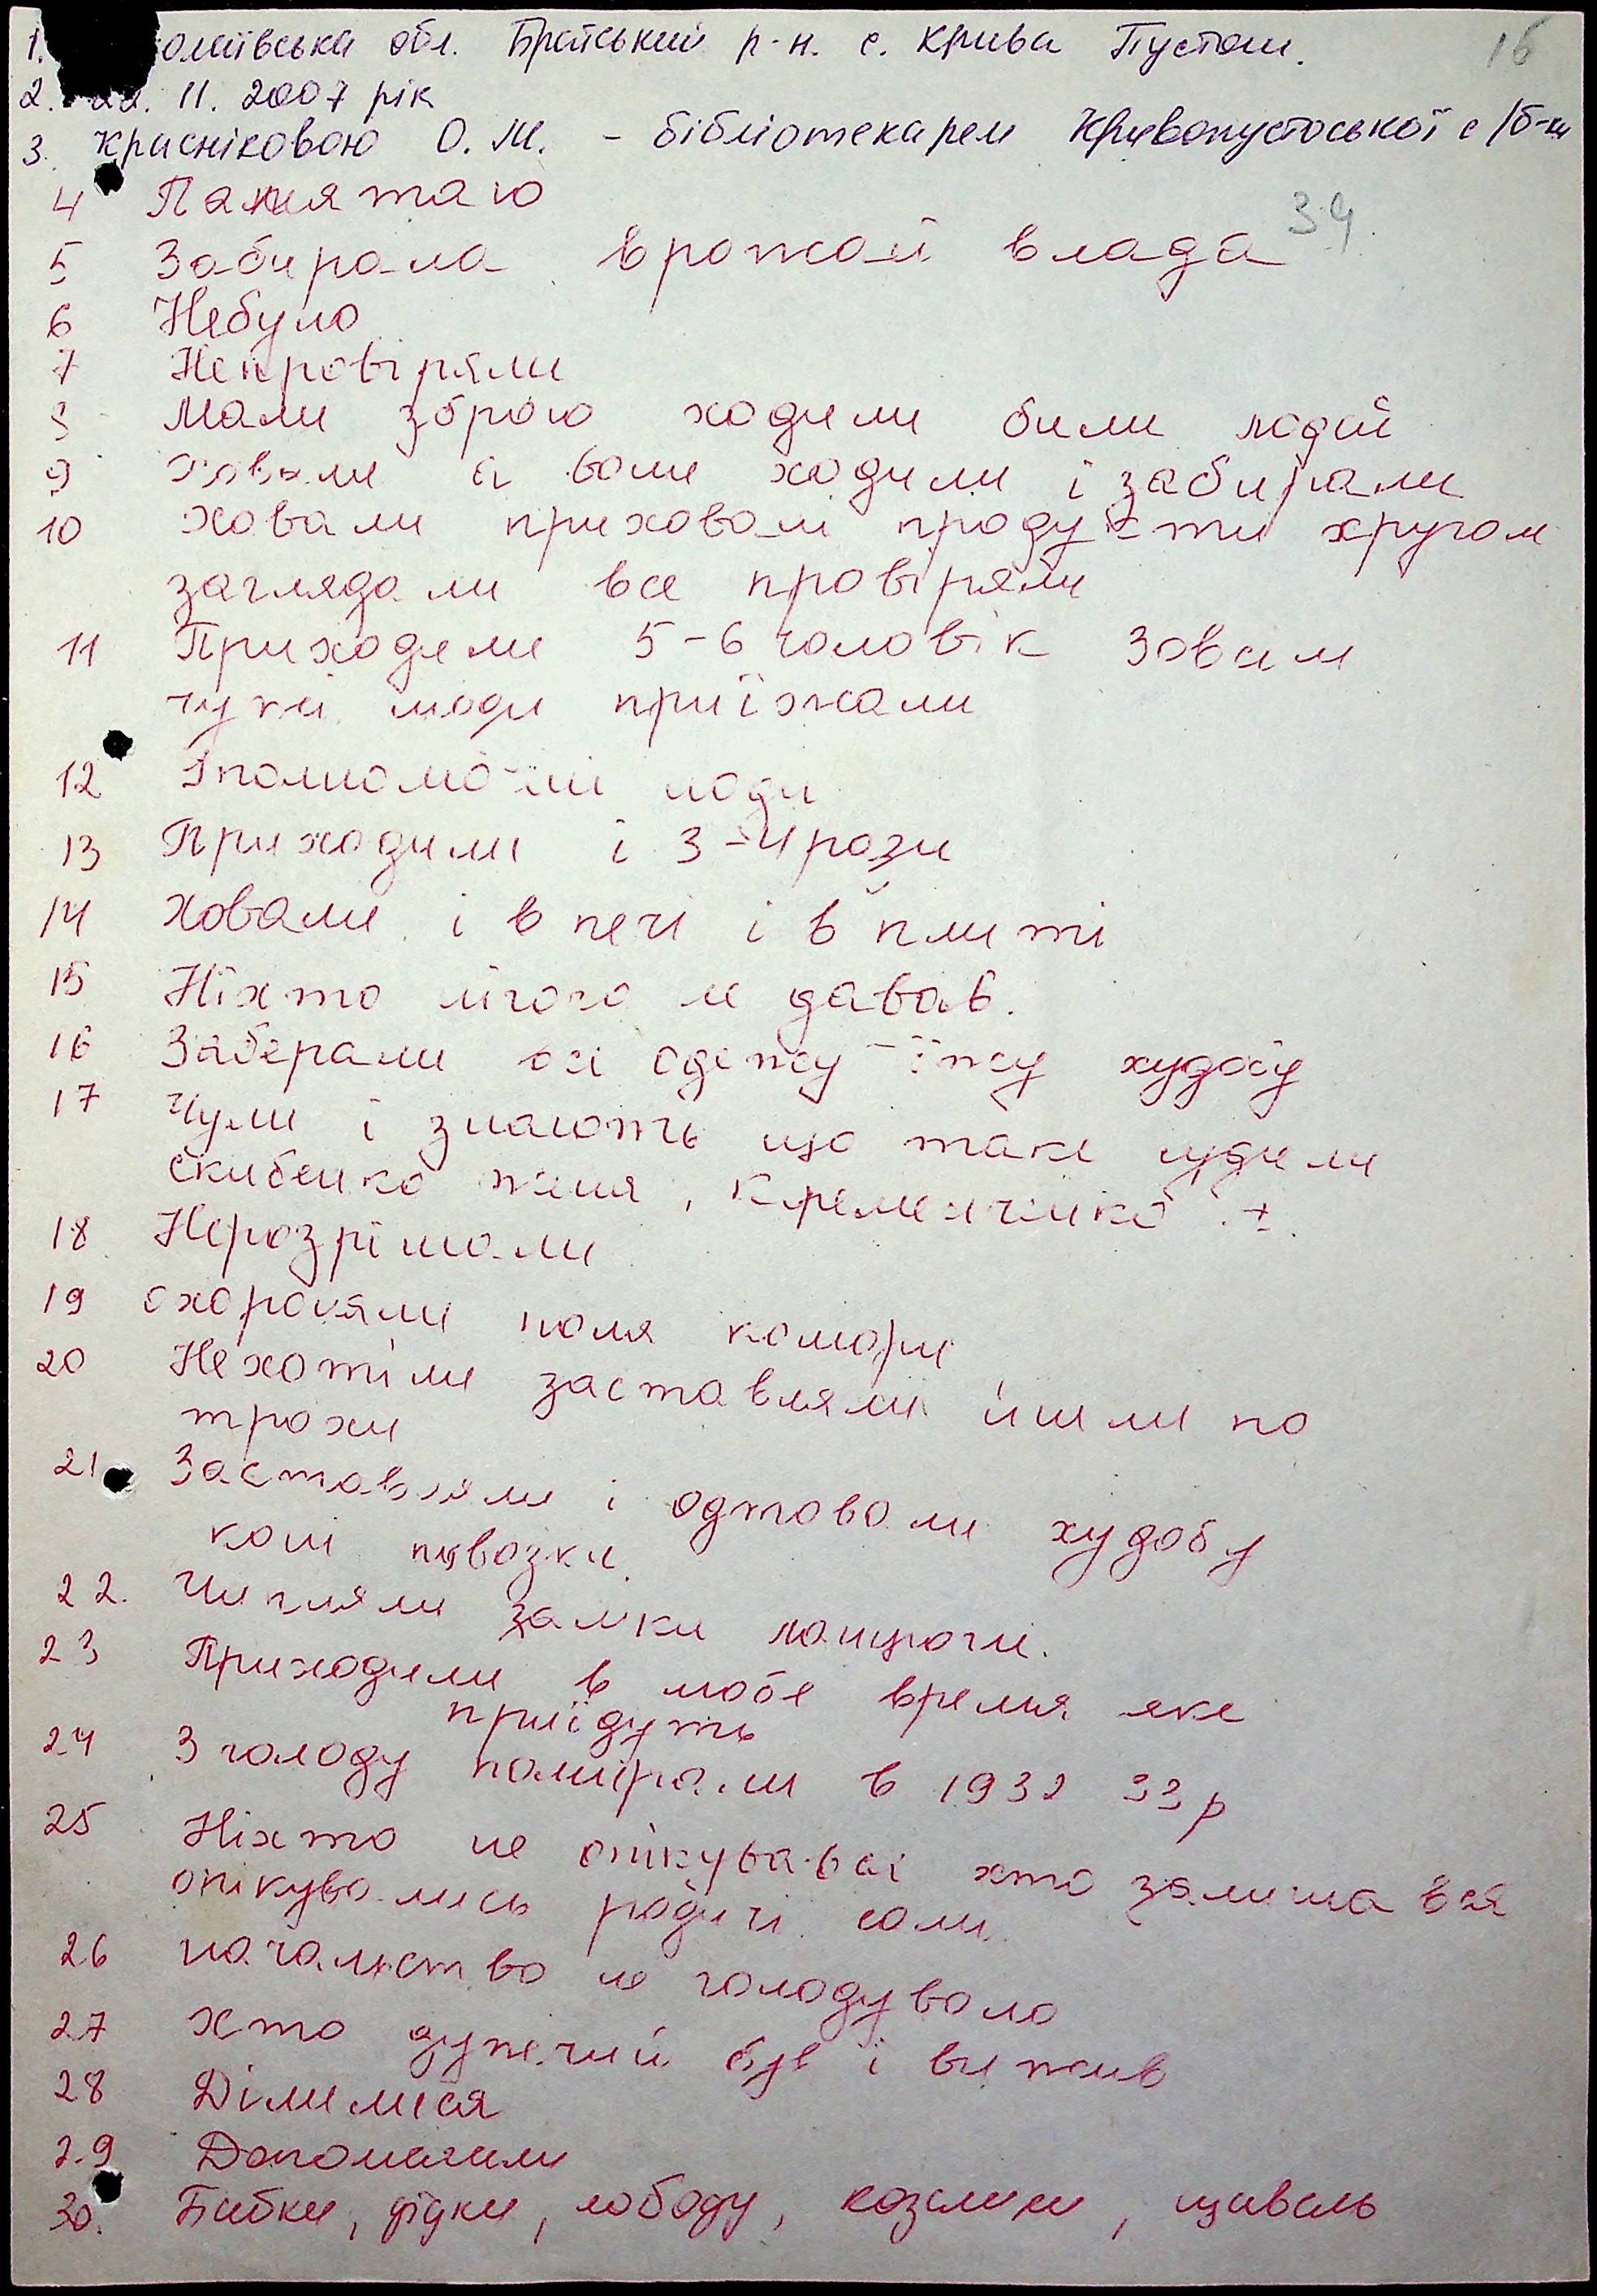 1. олаївська обл. Братський р-н. с. Крива Пустош. 16
2. 22. 11. 2007 рік
3. Красніковою О. М. - бібліотекарем Кривопустоської с/б-ки
4 Памятаю
34.
5 Забирала врожай влада
6 Небуло
7 Непровіряли
8 Мали зброю ходили били людей
9 Ховали а вони ходили і забирали
10 Ховали приховалі продукти кругом
заглядали все провіряли
11 Приходили 5-6 чоловік Зовсим
чужі люди приїжали
12 люди
13 Приходили і 3-4 рази
14 Ховали і в печі і в плиті
15 Ніхто нічого не давав.
16 Заберали всі одежу їжу худобу
17 Чули і знають що таке судили
Скибенко Женя, Кременченко
18 Нерозрішали
19 охороняли поля комори
20 Нехотіли заставляли ишли по
трохи
21 Заставляли і одтовали худобу
коні повозки.
22. Чипляли замки на пороги.
23 Приходили в любе время яке
приїдуть
24 З голоду помирали в 1932 33 р
25 Ніхто не опікувався хто залишався
опікувались родичі сами
26 начальство не голодувало
27 хто дужчий був і вижив
28 Ділилися
29 Допомагали
30. Бабки, дідки, лободу, козелики, щавель